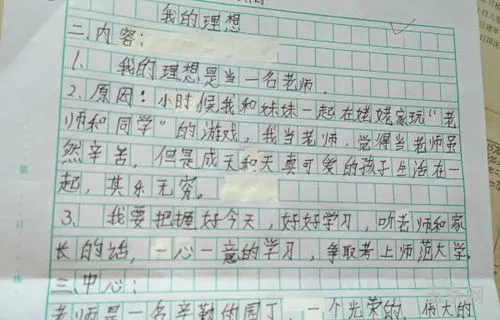 我的理想
二、内容：
1、我的理想是当一名老师．
2.原因：小时候我和妹妹一起在姥姥家玩“老
师和同学”的游戏，我当老师，觉得当老师虽
然辛苦，但是成天和天真可爱的孩子生活在一
起，其乐无穷。
3、我要把握好今天，好好学习，听老师和家
长的话，一心一意的学习，争取考上师范大学．
三.中心：
老师是一名辛勤的园丁，一个光荣的，伟大的